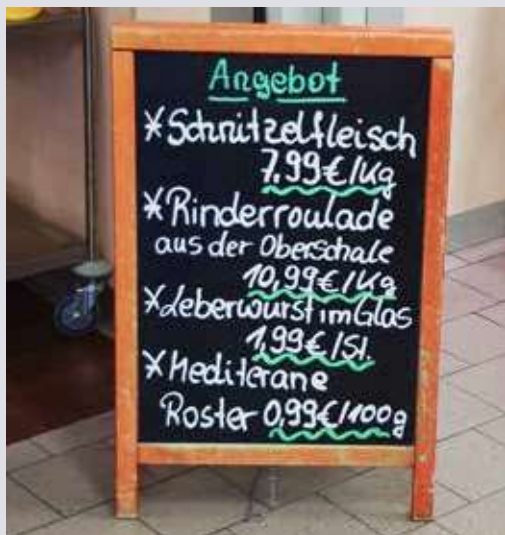 Angebot
* Schnitzelfleisch
7.99€/Kg
* Rinderroulade
aus der Oberschale
10,99€/Kg
* Leberwurst im Glas
1,99€/St.
* Mediterane
Roster 0,99€/100g